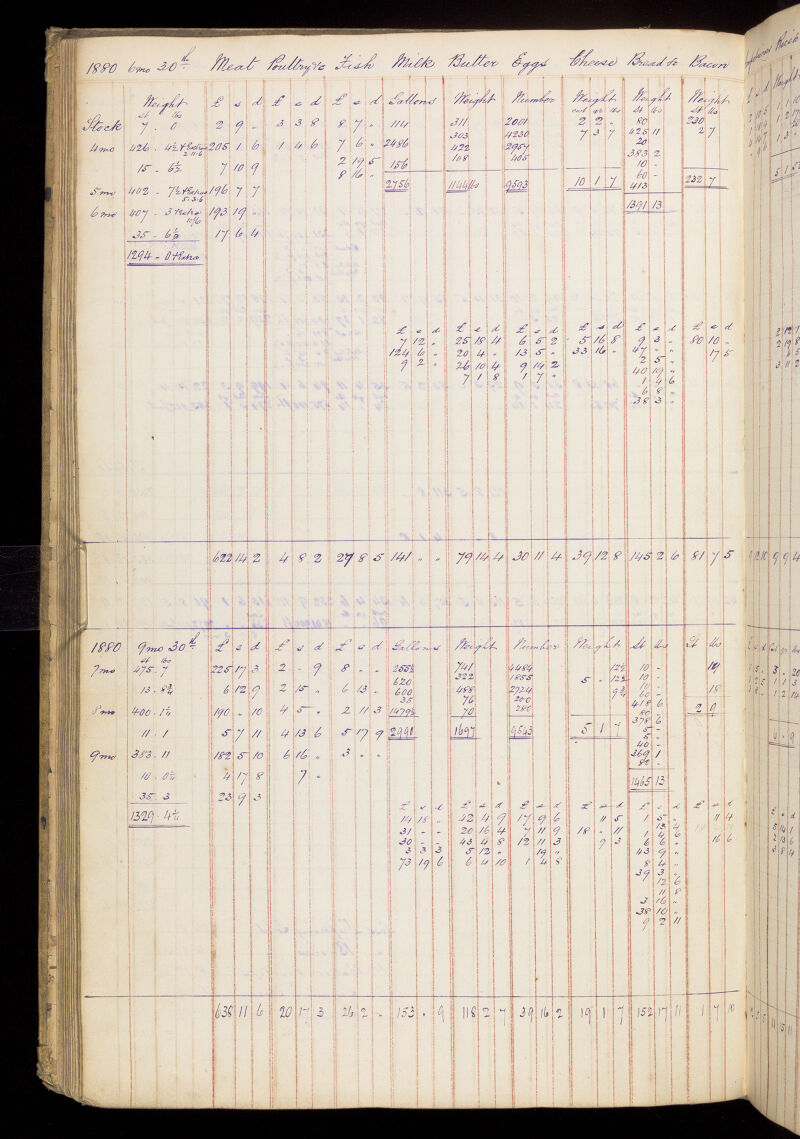 1880 6mo 30th Meat Poultry &c Fish Milk Butter Eggs Cheese Bread &c Bacon
Weight £ s d £ s d £ s d Gallons Weight Number Weight Weight Weight
st lbs cwt qr lbs st lbs st lbs
Stock 7 . 0 2 9 „ 3 3 8 8 7 „ 114 311 2001 2 2 „ 80 230
303 4230 7 3 7 425 11 2 7
4mo 426 . 4½ + Extra 205 1 6 1 4 6 7 6 „ 2486 422 2957 20
2.11.6
15 . 6½ 7 10 9 2 19 5 156 108 405 383 2
10 -
8 16 „ 60 -
5mo 402 - 7½ + Extra 196 7 7 2756 1144 lbs 9593 10 1 7 413 232 7
5.3.6
6mo 407 - 3 + Extra 193 19 „ 1391 13
10/6
35 - 6½ 17 6 4
1294 - 0 + Extra
£ s d £ s d £ s d £ s d £ s d £ s d
7 12 „ 25 18 4 6 5 2 5 16 8 9 3 „ 80 10 „
124 6 „ 20 4 „ 13 5 „ 33 16 „ 47 „ „ 17 5
9 2 „ 26 10 4 9 14 2 2 5 „
7 1 8 1 7 „ 40 19 „
1 4 6
6 8 „
38 3 „
622 14 2 4 8 2 27 8 5 141 „ „ 79 14 4 30 11 4 39 12 8 145 2 6 81 7 5
1880 9mo 30th £ s d £ s d £ s d Gallons Weight Number Weight St lbs St lbs
st lbs
7mo 475 . 7 225 17 3 2 - 9 8 - - 255½ 741 4484 12½ 10 - 19
620 322 1855 5 „ 12½ 10 -
13 . 8¾ 6 12 9 2 15 „ 6 13 „ 600 488 2724 9¾ 10 - 18
35 76 200 60 -
8mo 400 . 1¼ 190 „ 10 4 5 „ 2 11 3 1479½ 70 280 418 6 2 0
80
378 6
11 . 1 5 7 11 4 13 6 5 17 9 2990 1697 9543 5 1 7 5 -
5 -
40 -
9mo 383 . 11 182 5 10 6 16 „ 3 „ „ 369 1
80 -
10 . 0¼ 4 17 8 7 „ 1465 13
35 . 3 23 9 3
1329 . 4¼ £ s d £ s d £ s d £ s d £ s d £ s d
14 18 „ 42 4 9 17 9 6 11 5 1 5 „ 11 4
31 - - 20 16 4 7 11 9 18 „ 11 13 4
30 - - 43 4 8 12 11 3 9 3 1 4 6 16 6
3 3 3 5 12 „ 19 „ 6 6 „
73 19 6 6 4 10 1 4 8 43 9 „
8 4 „
39 3 „
12 6
11 8
3 16 „
38 10 „
9 2 11
638 11 6 20 17 3 26 2 „ 153 „ 9 118 2 7 39 16 2 19 1 7 152 17 11 1 7 10